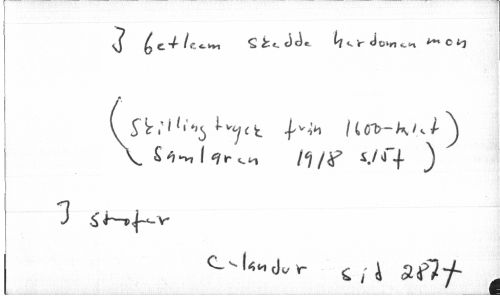 I betleem skedde herdomen mon
(Skillingtryck från 1600-talet)
(Samlaren 1918 s.15f)
3 strofer
C-landur sid 287f